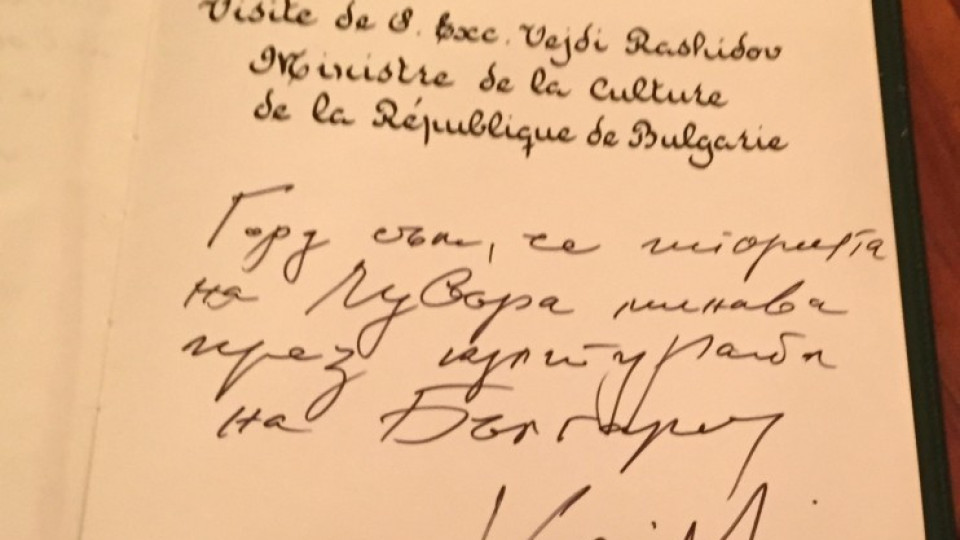 Visite de S. Exc. Vejdi Rashidov
Ministre de la Culture
de la République de Bulgarie
Горд съм, че
на Лувъра минава
през културата
на България